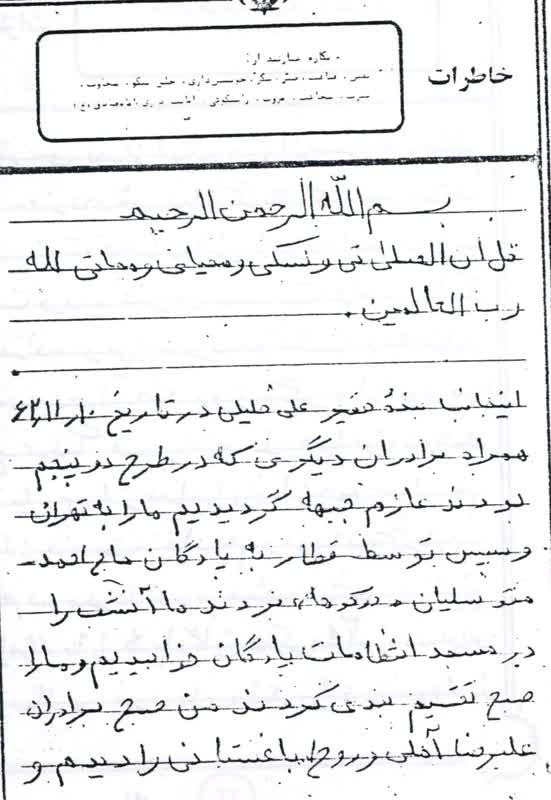 خاطرات
بسم الله الرحمن الرحیم
قل ان الصلاتی و نسکی و محیای و مماتی لله
رب العالمین.
اینجانب بنده حقیر علی خلیلی در تاریخ ۶۲/۱۱/۱۰
همراه برادران دیگری که در طرح
بودند عازم جبهه گردیدیم ما را به تهران
و سپس توسط قطار به پادگان حاج احمد
متوسلیان بردند ما آنشب را
در مسجد انتظامات پادگان خوابیدیم و ما را
صبح تقسیم بندی کردند من صبح برادران
علیرضا و روح ا... باغستانی را دیدم و